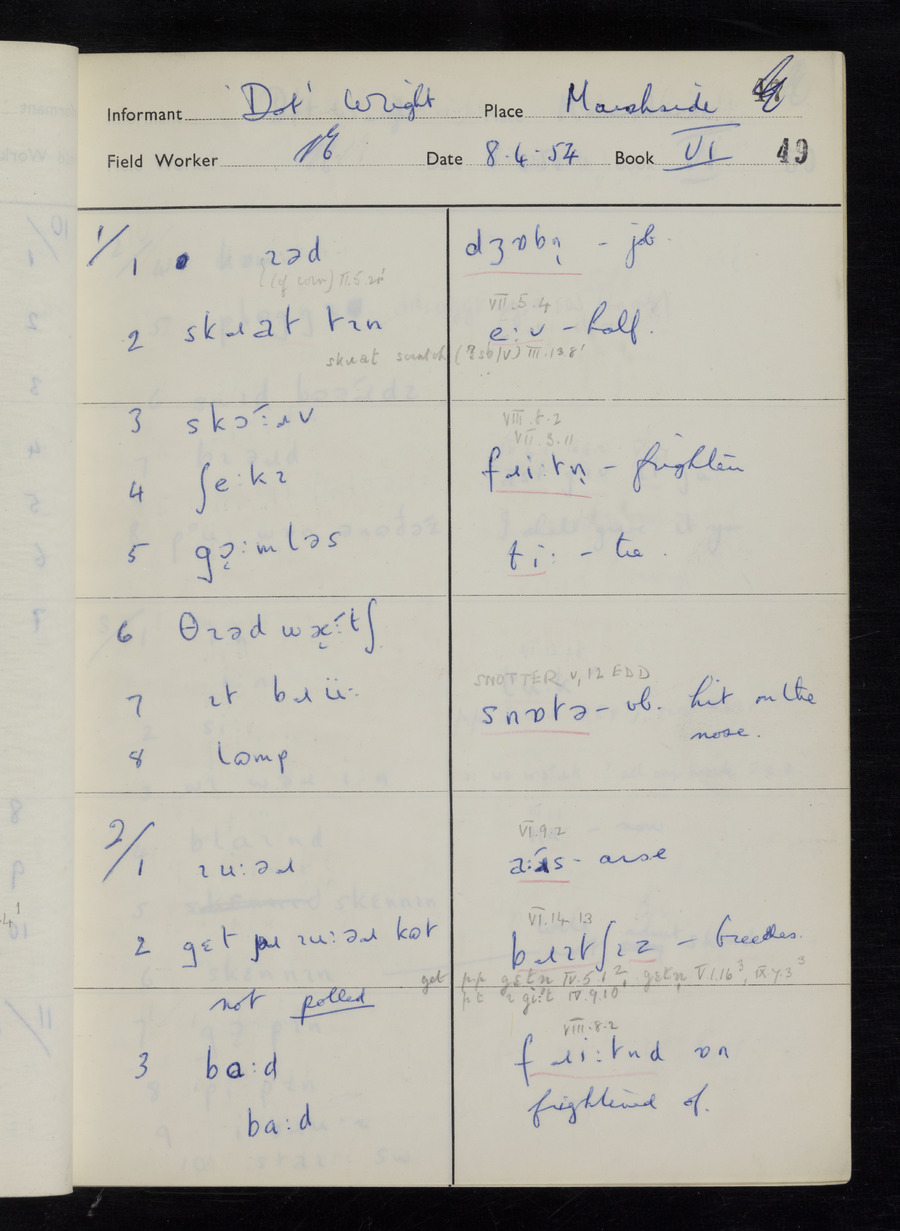 Informant 'Dot' Wright Place Marshside
Field Worker Date 8.4.54 Book VI 49
1/1 ɪəd
(of corn) II.5.
dʒɒbn̩ - job
2 skɹat tɪn
skɹat scratch (sb/v) III.13.8'
VII.5.4
e:v - half.
3 skɔ́:ɹv
4 ʃe:kɪ
VIII.8.2
VII.3.11
fɹi:tn̩ - frighten
5 gə̣:mləs
ti: - tea.
6 θɪəd wǽ̣:tʃ
7 ɪt bɹü:
8 lamp
SNOTTER v, 12 EDD
snɒtə - vb. hit on the
nose.
2/1 ɪu:əɹ
VI.9.2
a:ɹs - arse
2 gɛt ɪu:əɹ kɒt
not polled
VI.14.13
bɹɪtʃɪz - breeches.
get pp gɛtn IV.5.1², gɛtn VI.16³, IX.7.3³
pt gi:t IV.9.10
3 bɑ:d
ba:d
VIII.8.2
fɹi:tnd ɒn
frightened of.